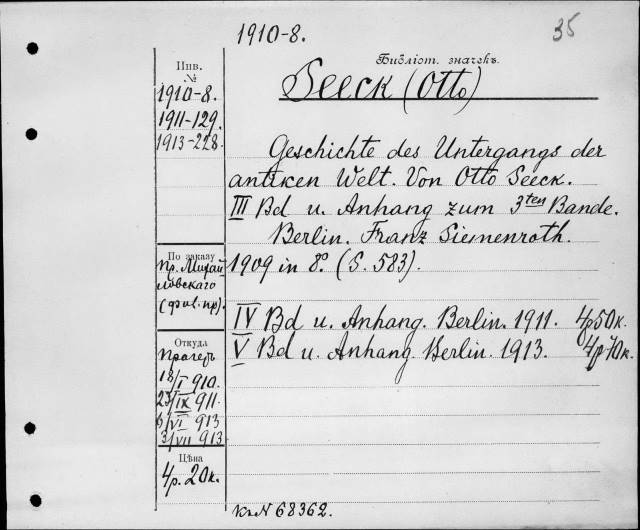 1910-8.
35
Инв.
№
Библіот. значекъ.
Seeck (Otto)
1910-8.
1911-129.
1913-228.
Geschichte des Untergangs der
antiken Welt. Von Otto Seeck.
III Bd u. Anhang zum 3ten Bande.
Berlin. Franz Siemenroth.
По заказу
пр. Михай
ловскаго
1909 in 8º. (S. 583).
IV Bd u. Anhang. Berlin. 1911. 4р50к.
V Bd u. Anhang. Berlin. 1913. 4р70к.
Откуда
Прагеръ
18/I 910.
23/IX 911.
6/VI 913
3/VII 913
Цѣна
4р. 20к.
КъN 68362.